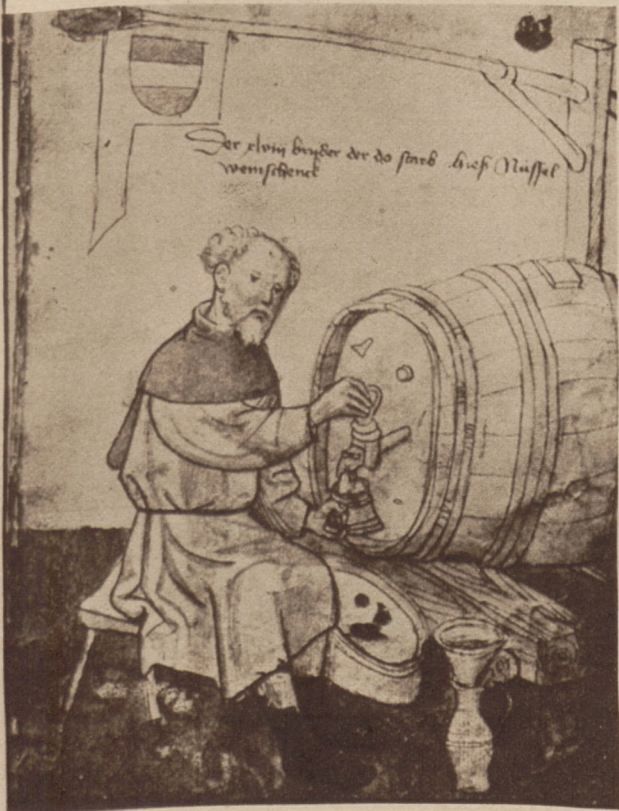 Der xlviij bruder der do starb hieß Nüssel
weinschenck